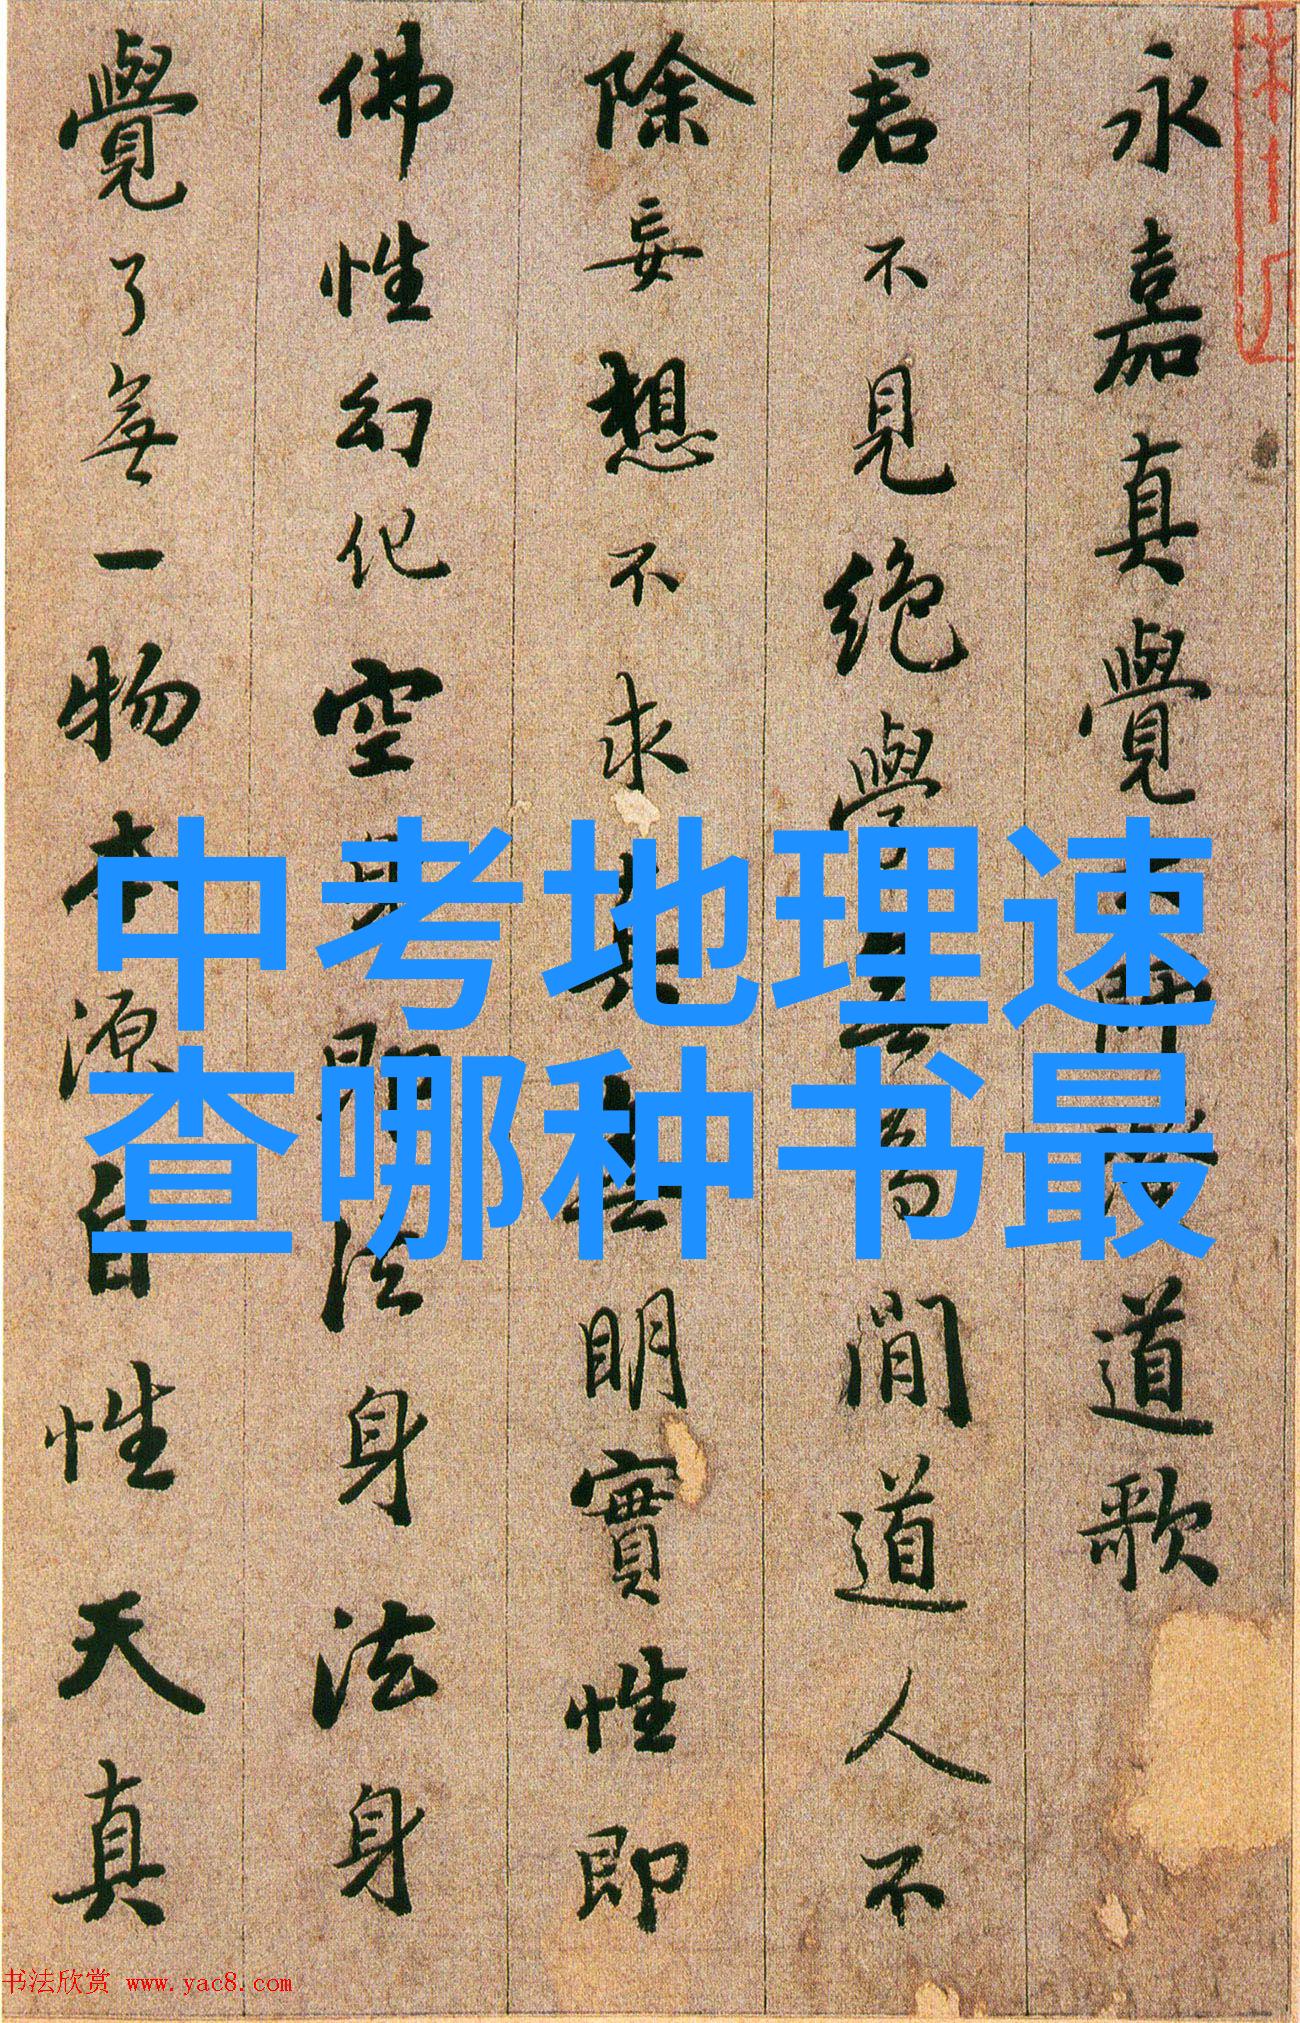 永嘉真覺大師證道歌
君不見絕學無為閒道人不
除妄想不求真無明實性即
佛性幻化空身即法身法身
覺了無一物本源自性天真
中考地理速
查哪种书最
书法欣赏 www.yac8.com